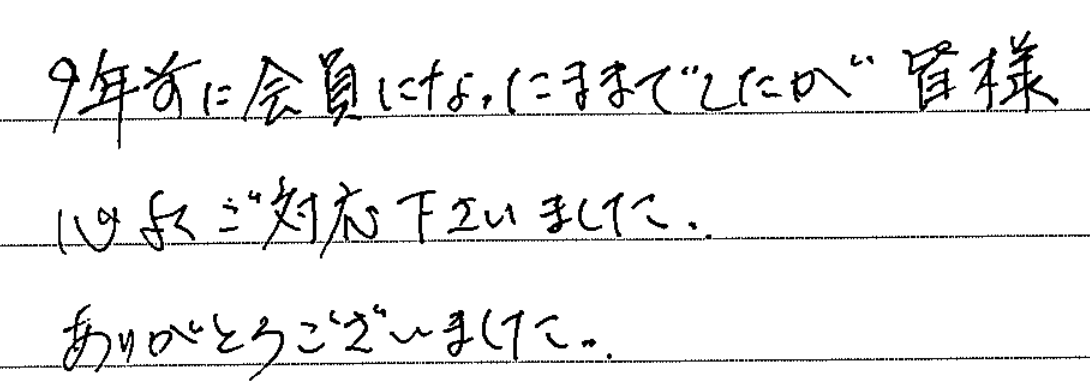 9年前に会員になったままでしたが 皆様
心よくご対応下さいました.
ありがとうございました..